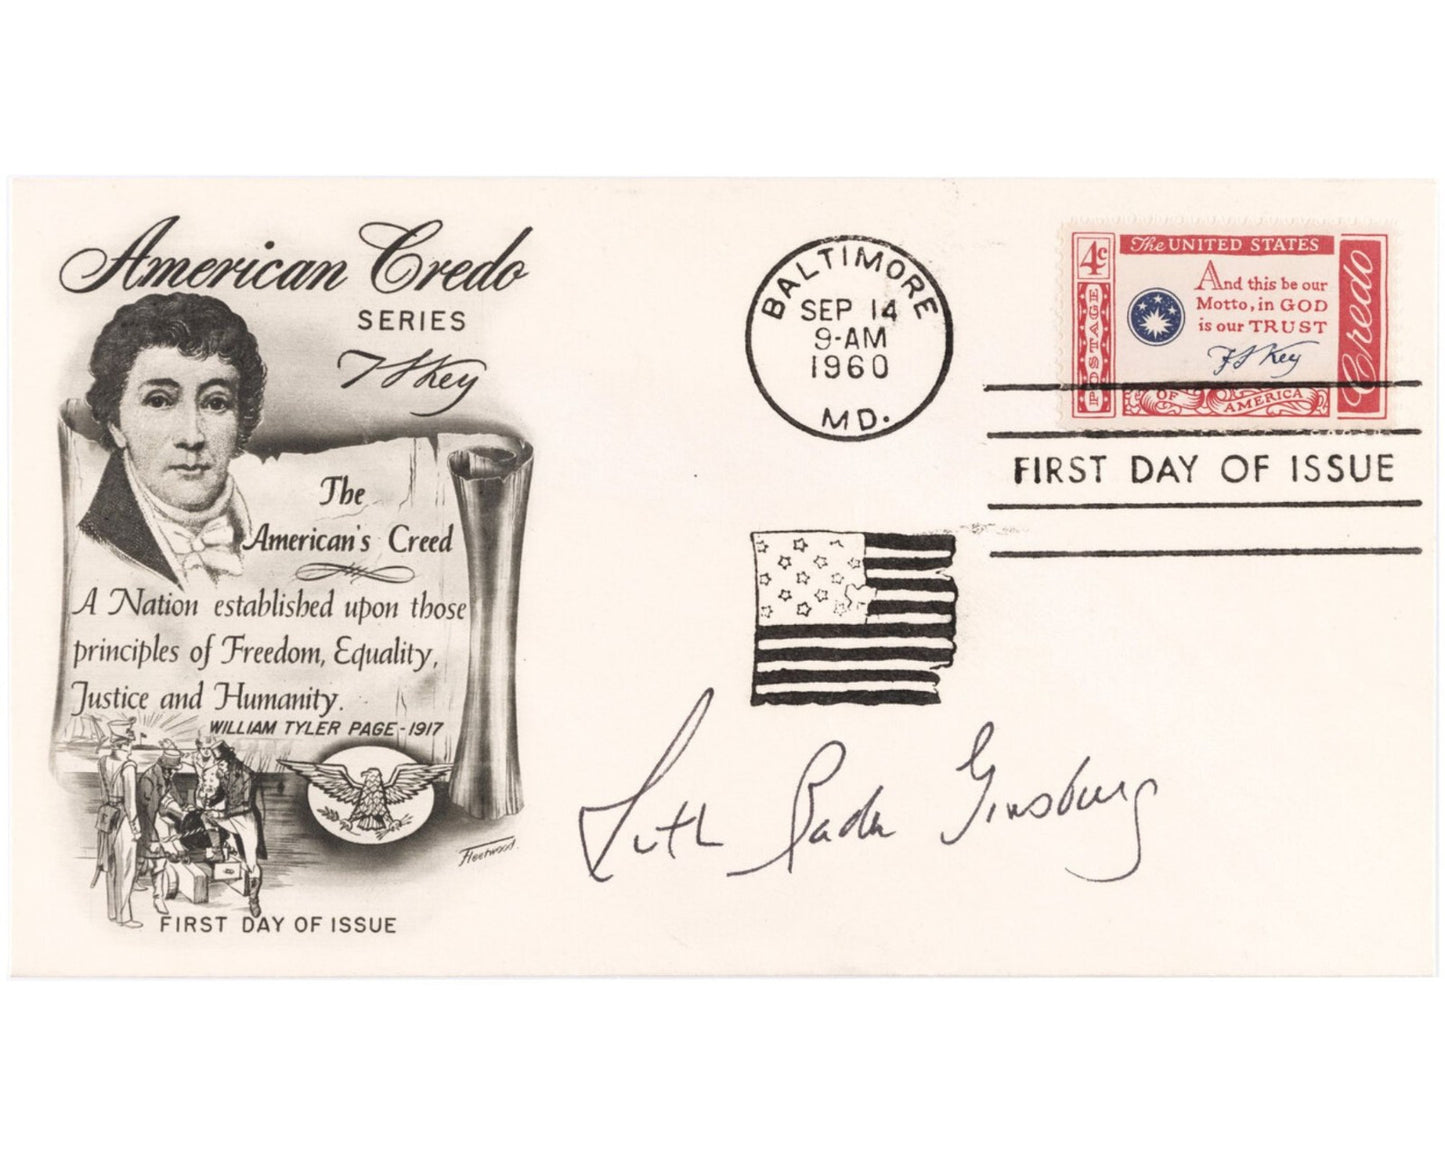 American Credo
SERIES
F S Key
The
American's Creed
A Nation established upon those
principles of Freedom, Equality,
Justice and Humanity.
WILLIAM TYLER PAGE - 1917
Fleetwood.
FIRST DAY OF ISSUE
BALTIMORE
SEP 14
9-AM
1960
MD.
4c
The UNITED STATES
POSTAGE
And this be our
Motto, in GOD
is our TRUST
F S Key
Credo
OF AMERICA
FIRST DAY OF ISSUE
Ruth Bader Ginsburg